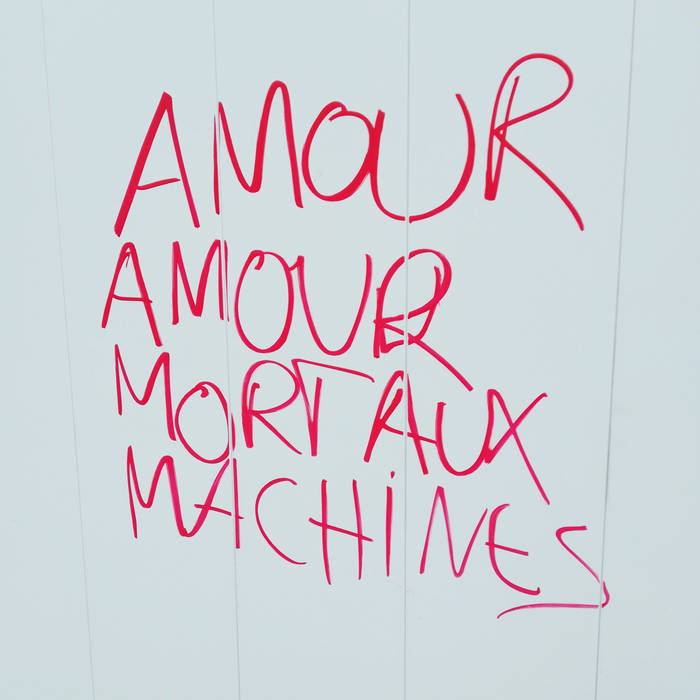 AMOUR
AMOUR
MORT AUX
MACHiNES